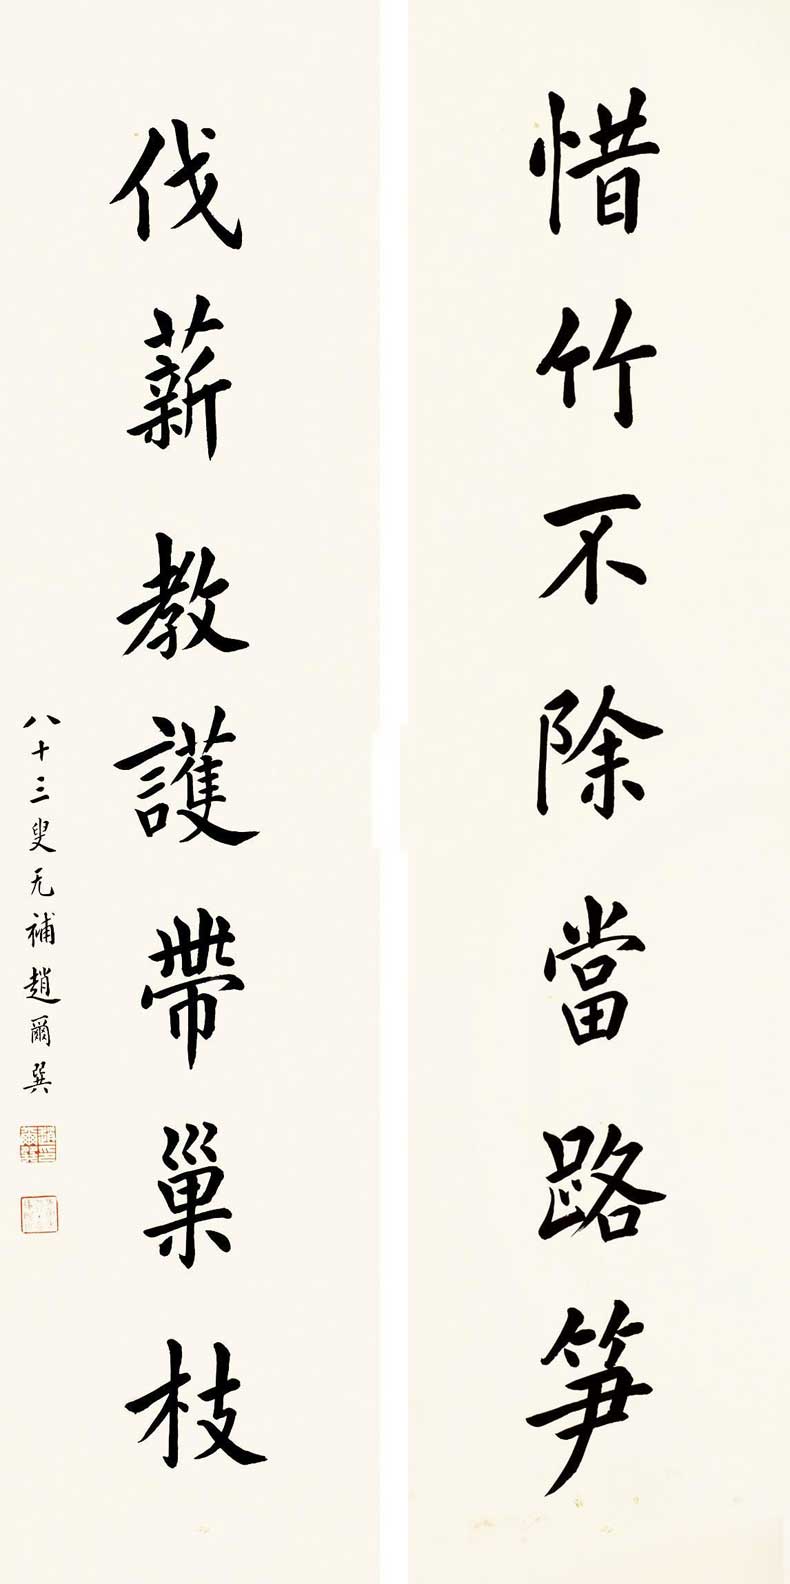 惜竹不除當路笋
伐薪教護帶巢枝
八十三叟无補趙爾巽